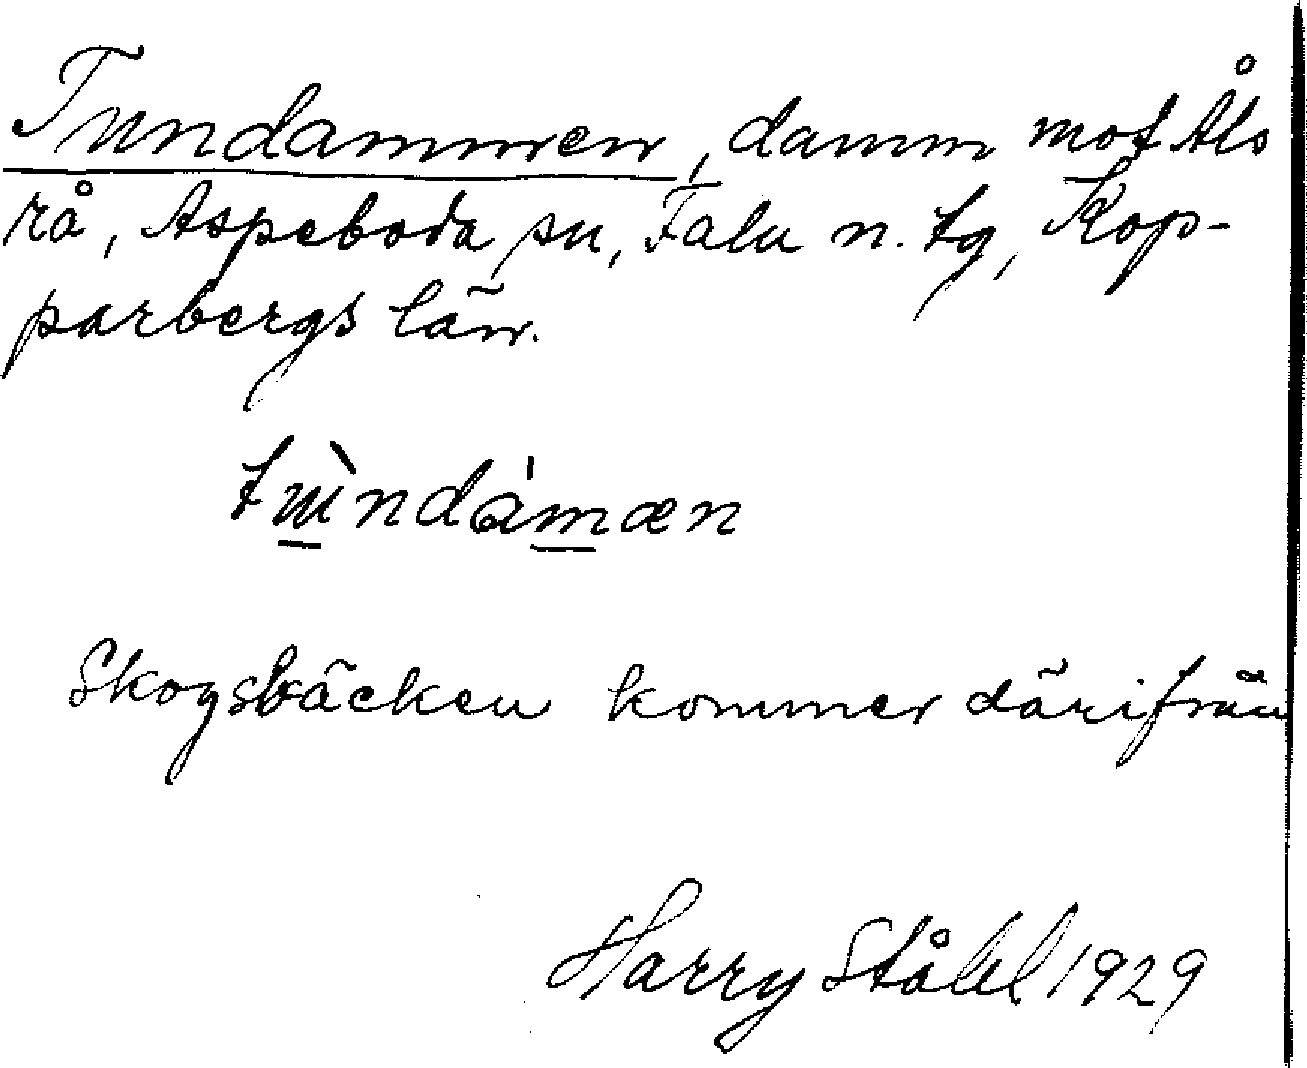 Tunndammen, damm mot Åls
rå, Aspeboda sn, Falu n. tg, Kop-
parbergs län.
tùndámæn
Skogsbäcken kommer därifrån
Harry Ståhl 1929